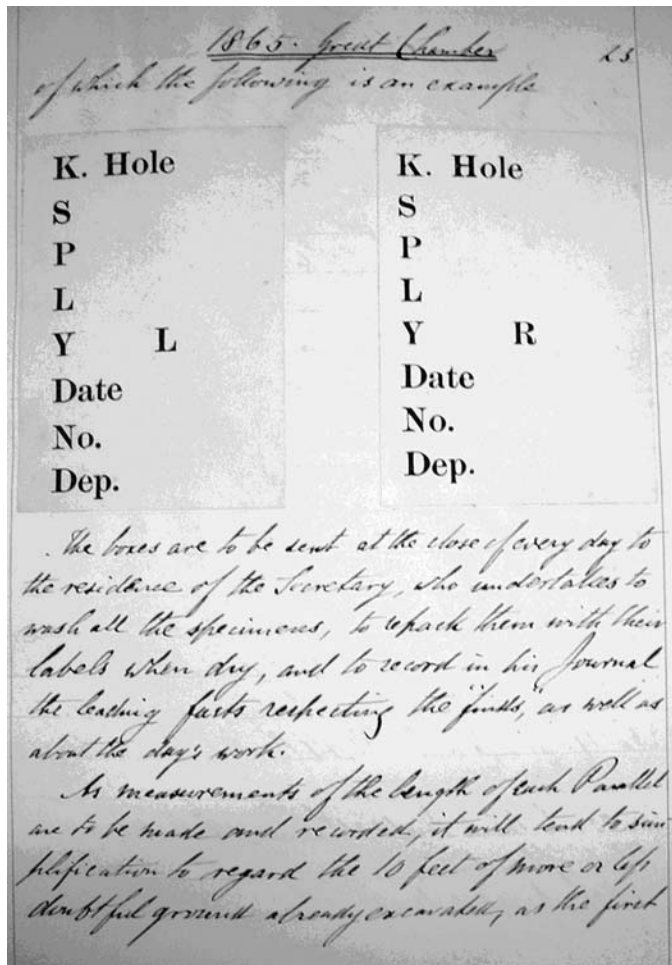 1865. Great Chamber 23
of which the following is an example
K. Hole
S
P
L
Y L
Date
No.
Dep.
K. Hole
S
P
L
Y R
Date
No.
Dep.
The boxes are to be sent at the close of every day to
the residence of the Secretary, who undertakes to
wash all the specimens, to repack them with their
labels when dry, and to record in his Journal
the leading facts respecting the "finds," as well as
about the day's work.
As measurements of the length of each Parallel
are to be made and recorded, it will tend to sim
plification to regard the 10 feet of more or less
doubtful ground already excavated, as the first